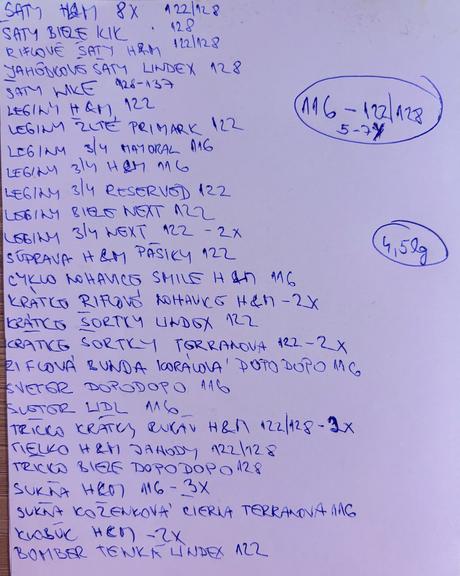 ŠATY H&M 8X 122/128
ŠATY BIELE KIK 128
RIFLOVÉ ŠATY H&M 122/128
JAHODKOVÉ ŠATY LINDEX 128
ŠATY NIKE 128-137
LEGINY H&M 122
LEGINY ŽLTÉ PRIMARK 122
LEGINY 3/4 MAYORAL 116
LEGINY 3/4 H&M 116
LEGINY 3/4 RESERVED 122
LEGINY BIELE NEXT 122
LEGINY 3/4 NEXT 122 -2X
SÚPRAVA H&M PÁSIKY 122
CYKLO NOHAVICE SMILE H&M 116
KRÁTKE RIFLOVÉ NOHAVICE H&M -2X
KRÁTKE ŠORTKY LINDEX 122
KRÁTKE ŠORTKY TERRANOVA 122-2X
RIFĽOVÁ BUNDA KORÁLOVÁ DOPODOPO 116
SVETER DOPODOPO 116
SVETER LIDL 116
TRIČKO KRÁTKY RUKÁV H&M 122/128-2X
TIELKO H&M JAHODY 122/128
TRIČKO BIELE DOPODOPO 128
SUKŇA H&M 116-3X
SUKŇA KOŽENKOVÁ ČIERNA TERRANOVA 116
KLOBÚK H&M -2X
BOMBER TENKÁ LINDEX 122
116-122/128
5-7Y
4,5kg